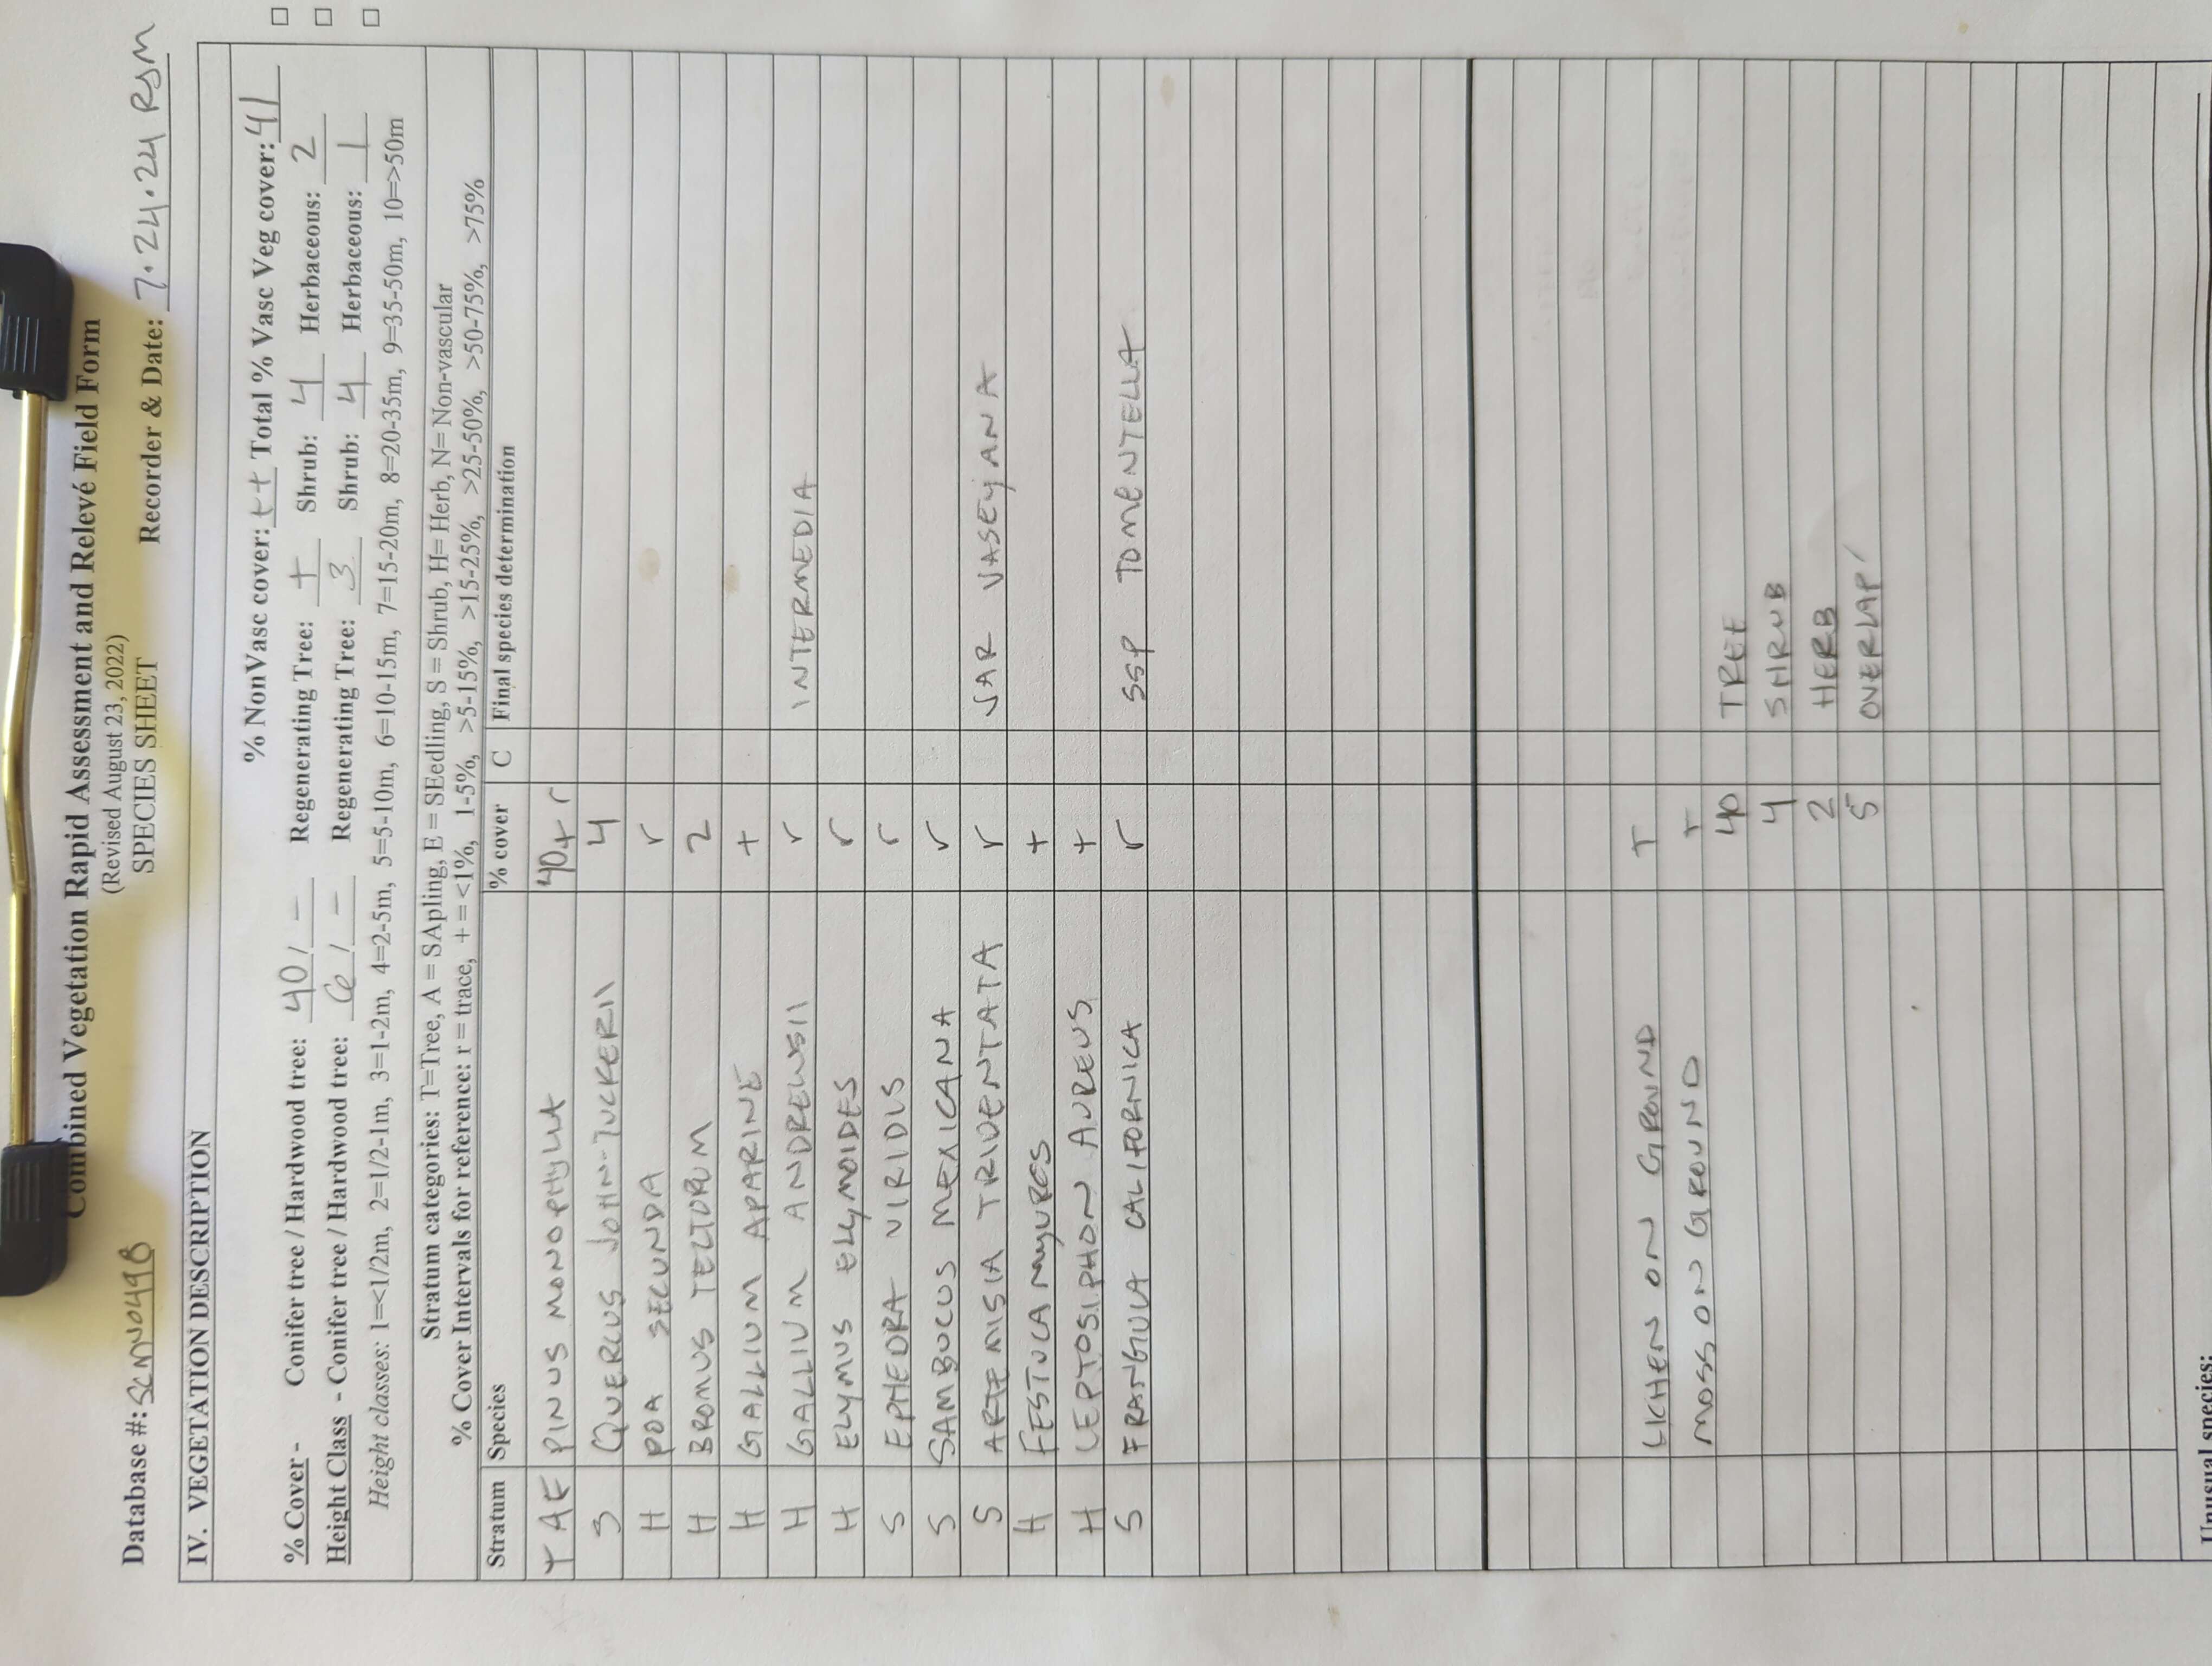 Combined Vegetation Rapid Assessment and Relevé Field Form
(Revised August 23, 2022)
SPECIES SHEET
Database #: SCMN0449B Recorder & Date: 7.24.24 RJM
IV. VEGETATION DESCRIPTION
% NonVasc cover: tt Total % Vasc Veg cover: 41
% Cover - Conifer tree / Hardwood tree: 40 / - Regenerating Tree: + Shrub: 4 Herbaceous: 2
Height Class - Conifer tree / Hardwood tree: 6 / - Regenerating Tree: 3 Shrub: 4 Herbaceous: 1
Height classes: 1=<1/2m, 2=1/2-1m, 3=1-2m, 4=2-5m, 5=5-10m, 6=10-15m, 7=15-20m, 8=20-35m, 9=35-50m, 10=>50m
Stratum categories: T=Tree, A = SApling, E = SEedling, S = Shrub, H= Herb, N= Non-vascular
% Cover Intervals for reference: r = trace, + = <1%, 1-5%, >5-15%, >15-25%, >25-50%, >50-75%, >75%
Stratum Species % cover C Final species determination
T A E PINUS MONOPHYLLA 40 + r
S QUERCUS JOHN-TUCKERII 4
H POA SECUNDA r
H BROMUS TECTORUM 2
H GALLIUM APARINE +
H GALLIUM ANDREWSII r INTERMEDIA
H ELYMUS ELYMOIDES r
S EPHEDRA VIRIDUS r
S SAMBUCUS MEXICANA r
S ARTEMISIA TRIDENTATA r VAR VASEYANA
H FESTUCA MYURES +
H LEPTOSIPHON AUREUS +
S FRANGULA CALIFORNICA r SSP TOMENTELLA
LICHEN ON GROUND T
MOSS ON GROUND T
40 TREE
4 SHRUB
2 HERB
5 OVERLAP
Unusual species: